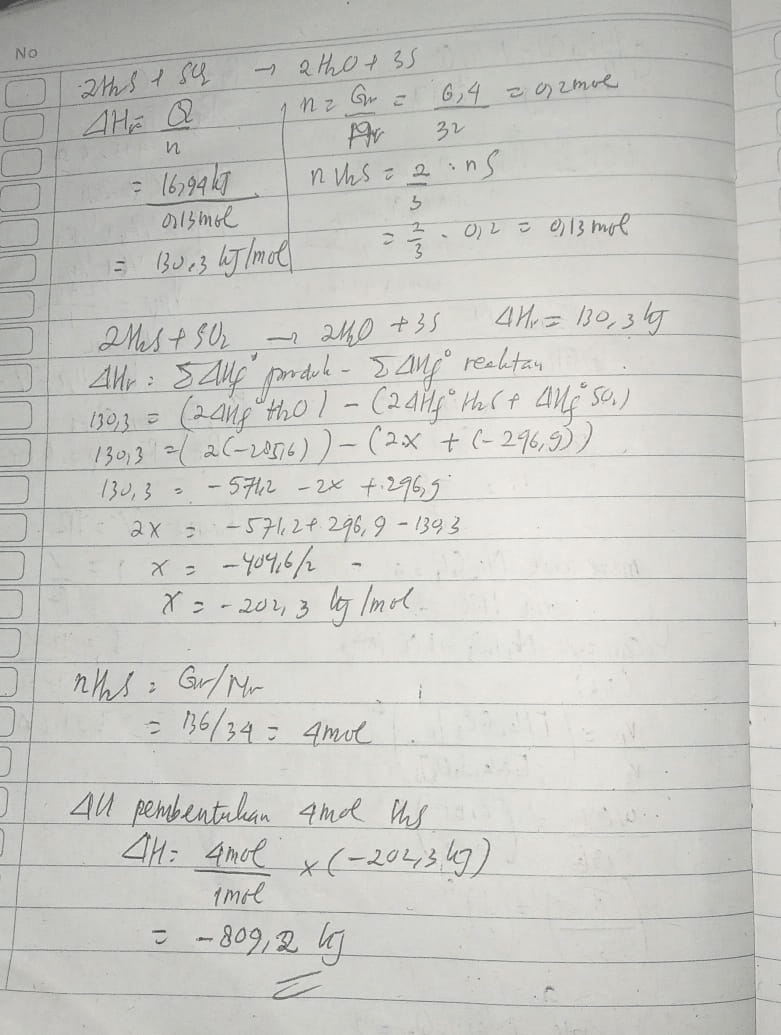 No
2H2S + SO2 → 2H2O + 3S
ΔHr = Q/n
n = Gr/Mr = 6,4/32 = 0,2 mol
= 16,94 kJ / 0,13 mol
n H2S = 2/3 . nS
= 2/3 . 0,2 = 0,13 mol
= 130,3 kJ/mol
2H2S + SO2 → 2H2O + 3S ΔHr = 130,3 kJ
ΔHr = ΣΔHf° produk - ΣΔHf° reaktan
130,3 = (2ΔHf° H2O) - (2ΔHf° H2S + ΔHf° SO2)
130,3 = (2(-285,6)) - (2x + (-296,9))
130,3 = -571,2 - 2x + 296,9
2x = -571,2 + 296,9 - 130,3
x = -404,6/2
x = -202,3 kJ/mol
nH2S = Gr/Mr
= 136/34 = 4mol
ΔH pembentukan 4mol H2S
ΔH = 4mol/1mol x (-202,3 kJ)
= -809,2 kJ